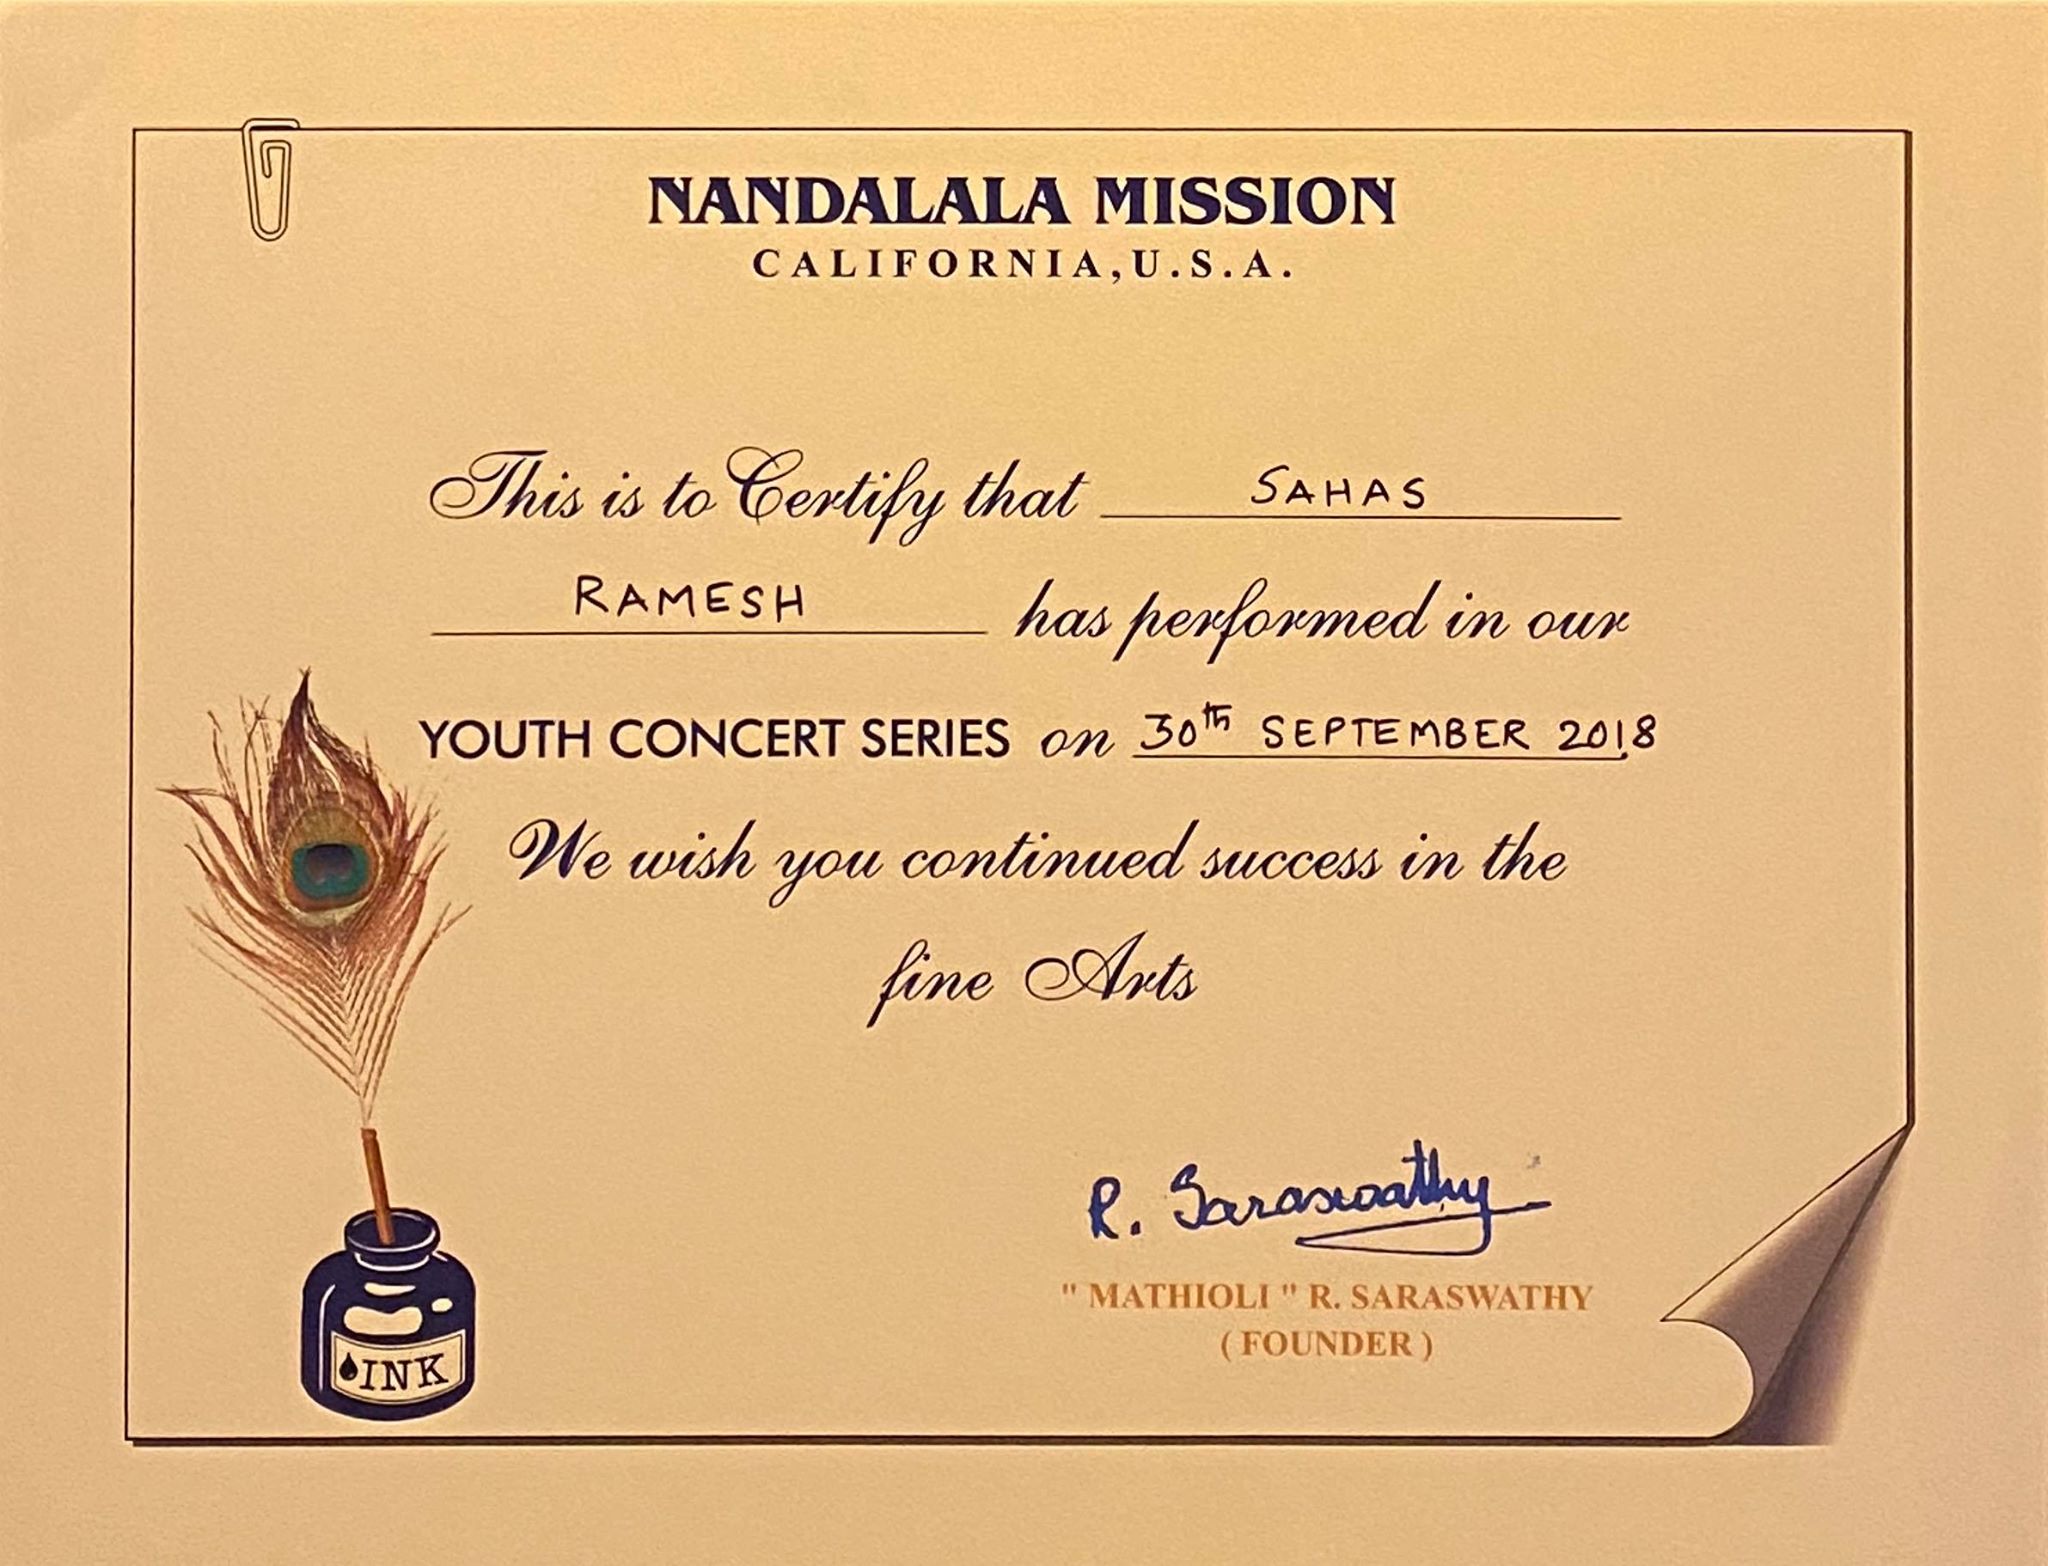 NANDALALA MISSION
CALIFORNIA, U.S.A.
This is to Certify that SAHAS
RAMESH has performed in our
YOUTH CONCERT SERIES on 30th SEPTEMBER 2018.
We wish you continued success in the
fine Arts
R. Saraswathy
" MATHIOLI " R. SARASWATHY
( FOUNDER )
INK